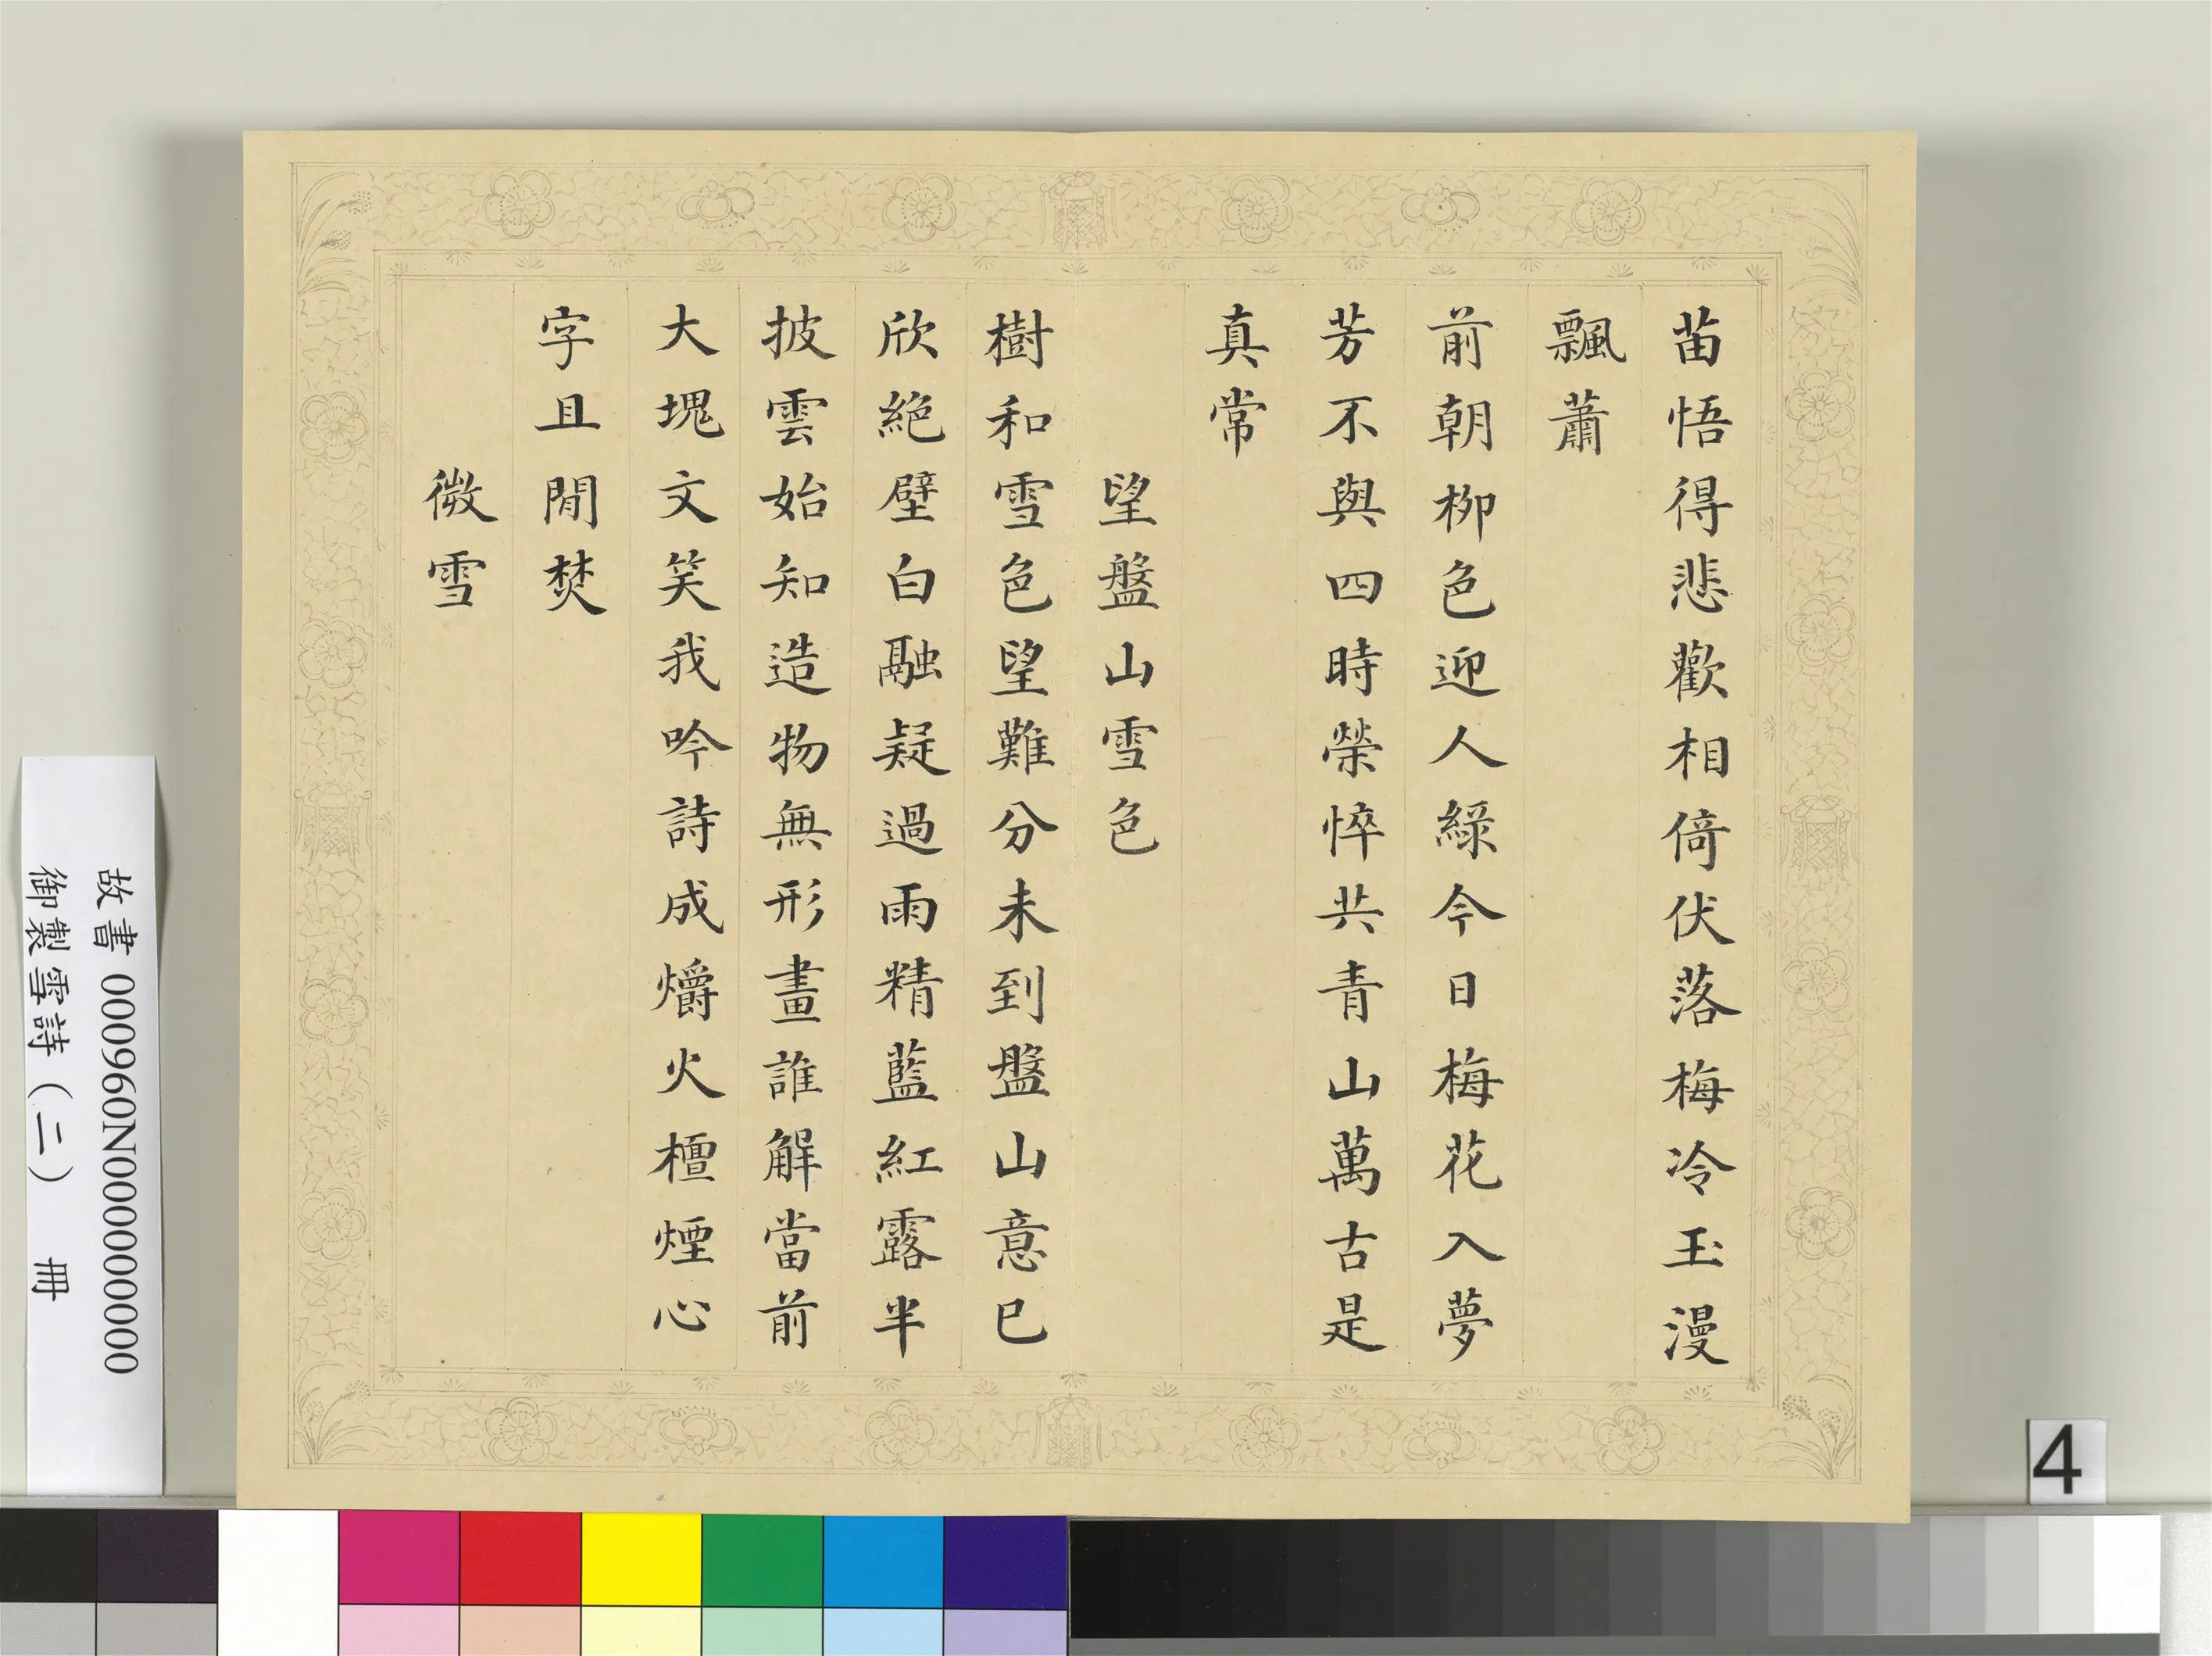 苗悟得悲歡相倚伏落梅冷玉漫
飄蕭
前朝柳色迎人綠今日梅花入夢
芳不與四時榮悴共青山萬古是
真常
望盤山雪色
樹和雪色望難分未到盤山意已
欣絕壁白融疑過雨精藍紅露半
披雲始知造物無形畫誰解當前
大塊文笑我吟詩成爝火檀煙心
字且閒焚
微雪
故書 000960N000000000
御製雪詩（二） 冊
4